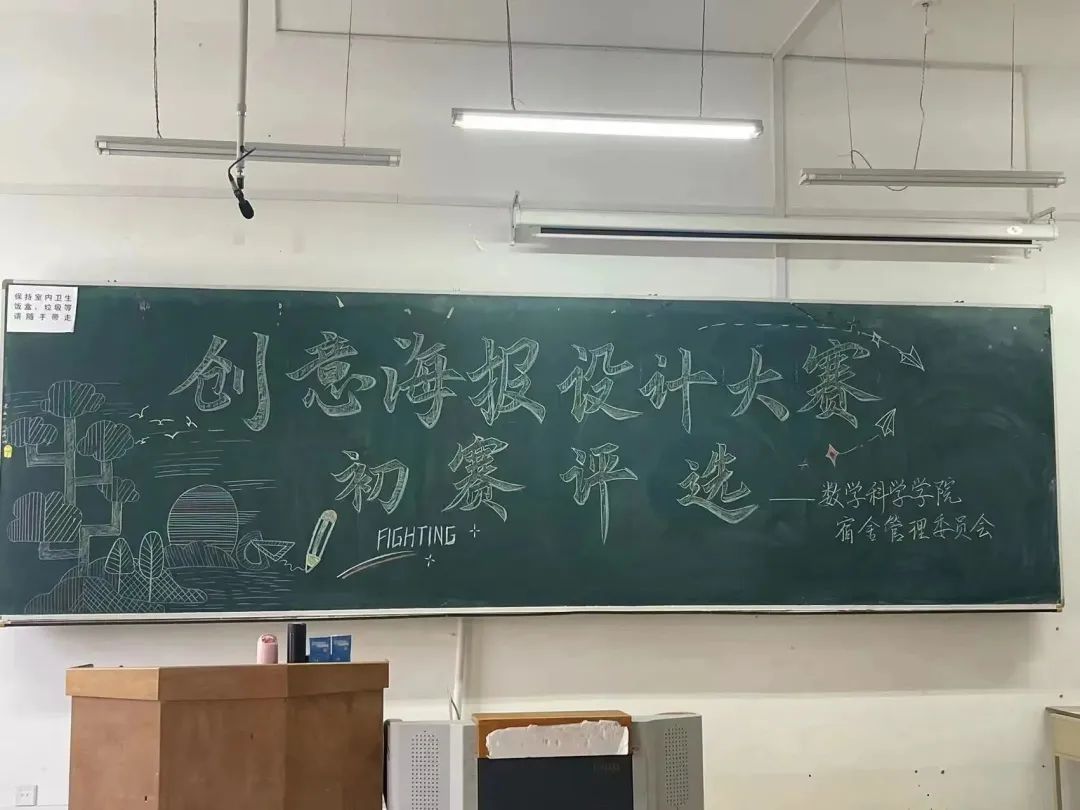 保持室内卫生
饭盒、垃圾等
请随手带走
创意海报设计大赛
初赛评选
——数学科学学院
宿舍管理委员会
FIGHTING